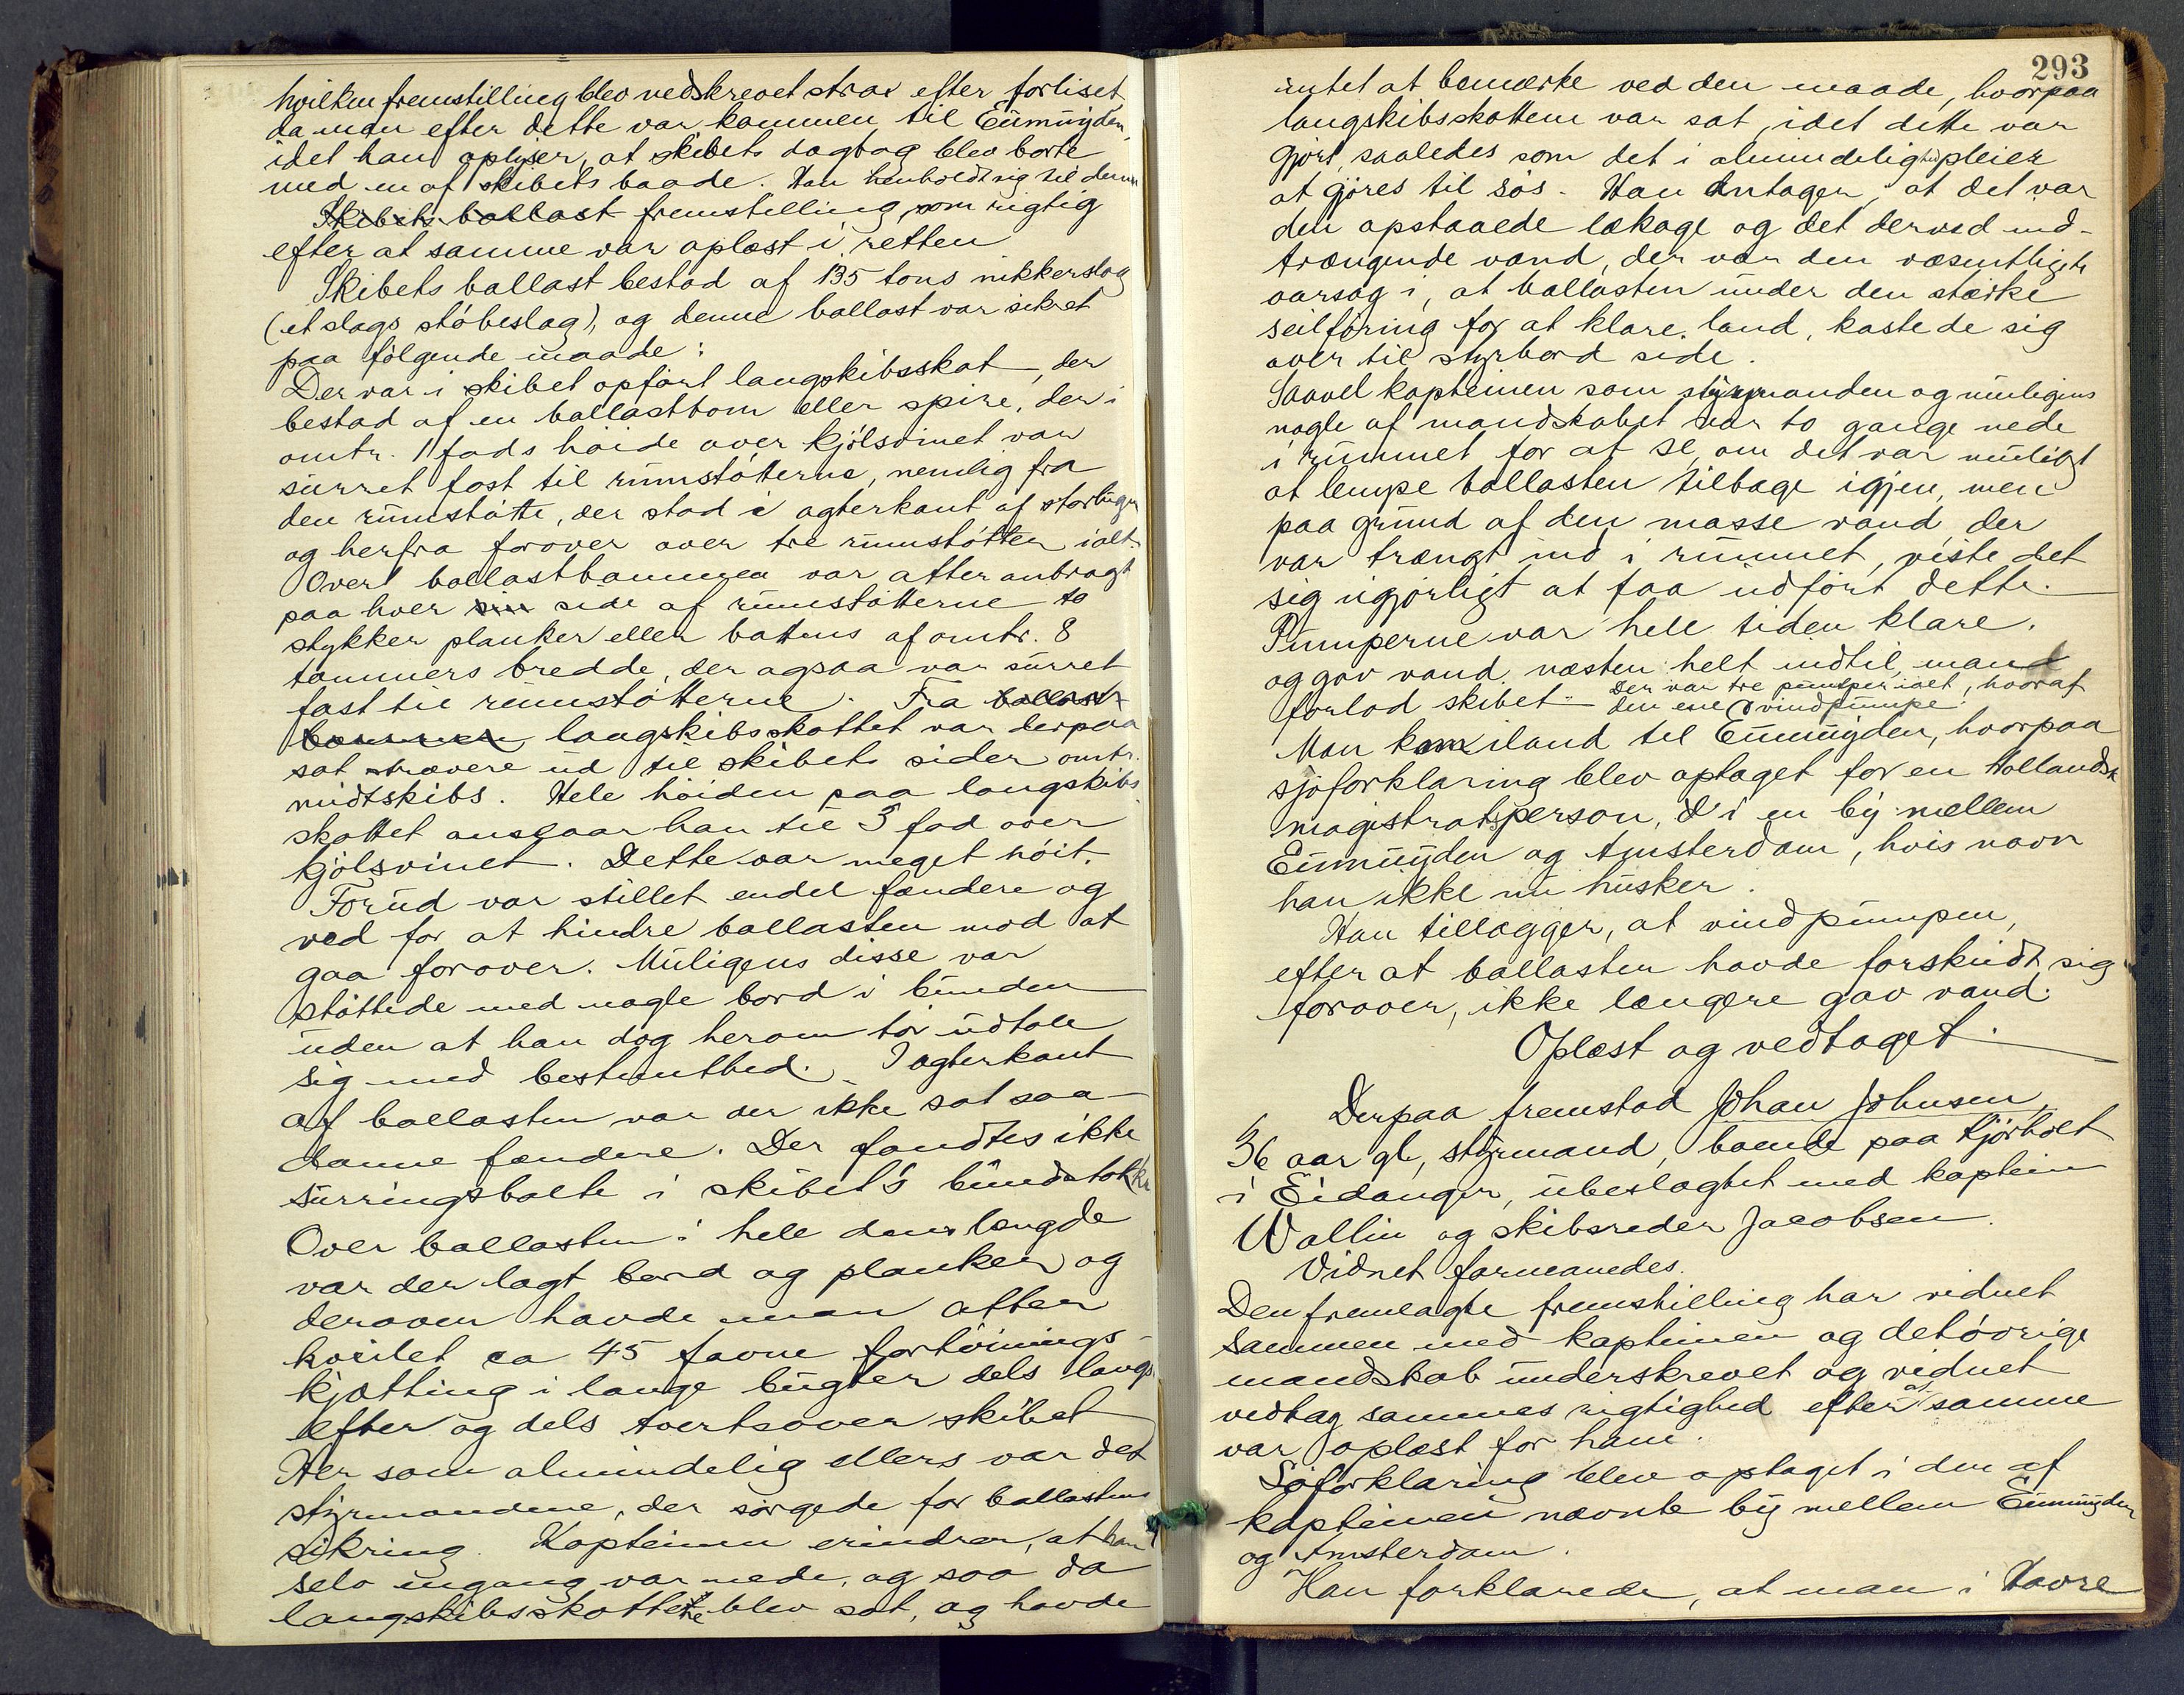 hvilken fremstilling blev nedskrevet strax efter forliset,
da man efter dette var kommen til Eümüyden,
idet han oplyser, at skibets dagbog blev borte
med en af skibets baade. Han henholdt sig til denne
Skibets ballast fremstilling som rigtig
efter at samme var oplæst i retten
Skibets ballast bestod af 135 tons nikkerslag
(et slags støbeslag), og denne ballast var sikret
paa følgende maade:
Der var i skibet opført langskibsskot, der
bestod af en ballastbom eller spire, der i
omtr. 1 fods høide over kjølsvinet var
surret fast til rumstøtterne, nemlig fra
den rumstøtte, der stod i agterkant af storlugen
og herfra forover over tre rumstøtter ialt.
Over ballastbommen var atter anbragt
paa hver sin side af rumstøtterne to
stykker planker eller battens af omtr. 8
tommers bredde, der ogsaa var surret
fast til rumstøtterne. Fra ballast
bommen langskibsskottet var derpaa
sat strævere ud til skibets sider omtr.
midtskibs. Hele høiden paa langskibs
skottet anslaar han til 3 fod over
kjølsvinet. Dette var meget høit.
Forud var stillet endel fendere og
ved for at hindre ballasten mod at
gaa forover. Muligens disse var
støttede med nogle bord i bunden
uden at han dog herom tør udtale
sig med bestemthed. I agterkant
af ballasten var der ikke sat saa-
danne fendere. Der fandtes ikke
surringsbolte i skibets bundstokke
Over ballasten i hele dens længde
var der lagt bord og planker og
derover havde man atter
kveilet ca 45 favne fortøinings-
kjætting i lange bugter dels langs
efter og dels tvertsover skibet
Her som almindelig ellers var det
styrmandene, der sørgede for ballastens
sikring. Kapteinen erindrer, at han
selv engang var nede, og saa da
langskibsskottene blev sat, og havde
293
intet at bemærke ved den maade, hvorpaa
langskibsskottene var sat, idet dette var
gjort saaledes som det i almindelighed pleier
at gjøres til søs. Han antager, at det var
den opstaaede lækage og det derved ind-
trængende vand, der var den væsentligste
aarsag i, at ballasten under den stærke
seilføring for at klare land, kastede sig
over til styrbord side.
Saavel kapteinen som styrmanden og muligens
nogle af mandskabet var to gange nede
i rummet for at se, om det var muligt
at lempe ballasten tilbage igjen, men
paa grund af den masse vand, der
var trængt ind i rummet, viste det
sig ugjørligt at faa udført dette.
Pumperne var hele tiden klare,
og gav vand næsten helt indtil mand
forlod skibet. Der var tre pumper ialt, hvoraf
den ene vindpumpe.
Man kom iland til Eümüyden, hvorpaa
sjøforklaring blev optaget for en Hollandsk
magistratsperson, i en by mellem
Eümüyden og Amsterdam, hvis navn
han ikke nu husker.
Han tillægger, at vindpumpen,
efter at ballasten havde forskudt sig
forover, ikke længere gav vand.
Oplæst og vedtaget.
Derpaa fremstod Johan Johnsen,
36 aar gl, styrmand, boende paa Kjørholt
i Eidanger, ubeslægtet med kaptein
Wallin og skibsreder Jacobsen.
Vidnet formanedes.
Den fremlagte fremstilling har vidnet
sammen med kapteinen og det øvrige
mandskab underskrevet og vidnet
vedtog sammes rigtighed efter at samme
var oplæst for ham.
Søforklaring blev optaget i den af
kapteinen nævnte by mellem Eümüyden
og Amsterdam.
Han forklarede, at man i Havre